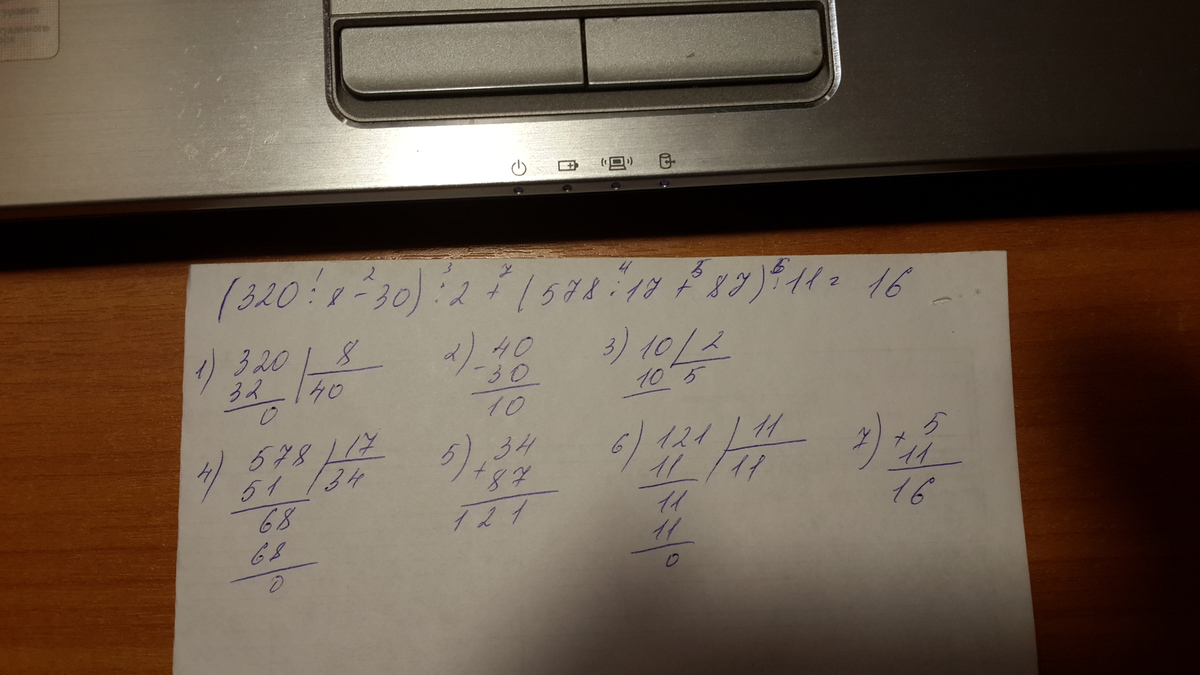 (320 : 8 - 30) : 2 + (578 : 17 + 87) : 11 = 16
1 2 3 7 4 5 6
1) 320 | 8
32 40
0
2) - 40
30
10
3) 10 | 2
10 5
4) 578 | 17
51 34
68
68
0
5) + 34
87
121
6) 121 | 11
11 11
11
11
0
7) + 5
11
16